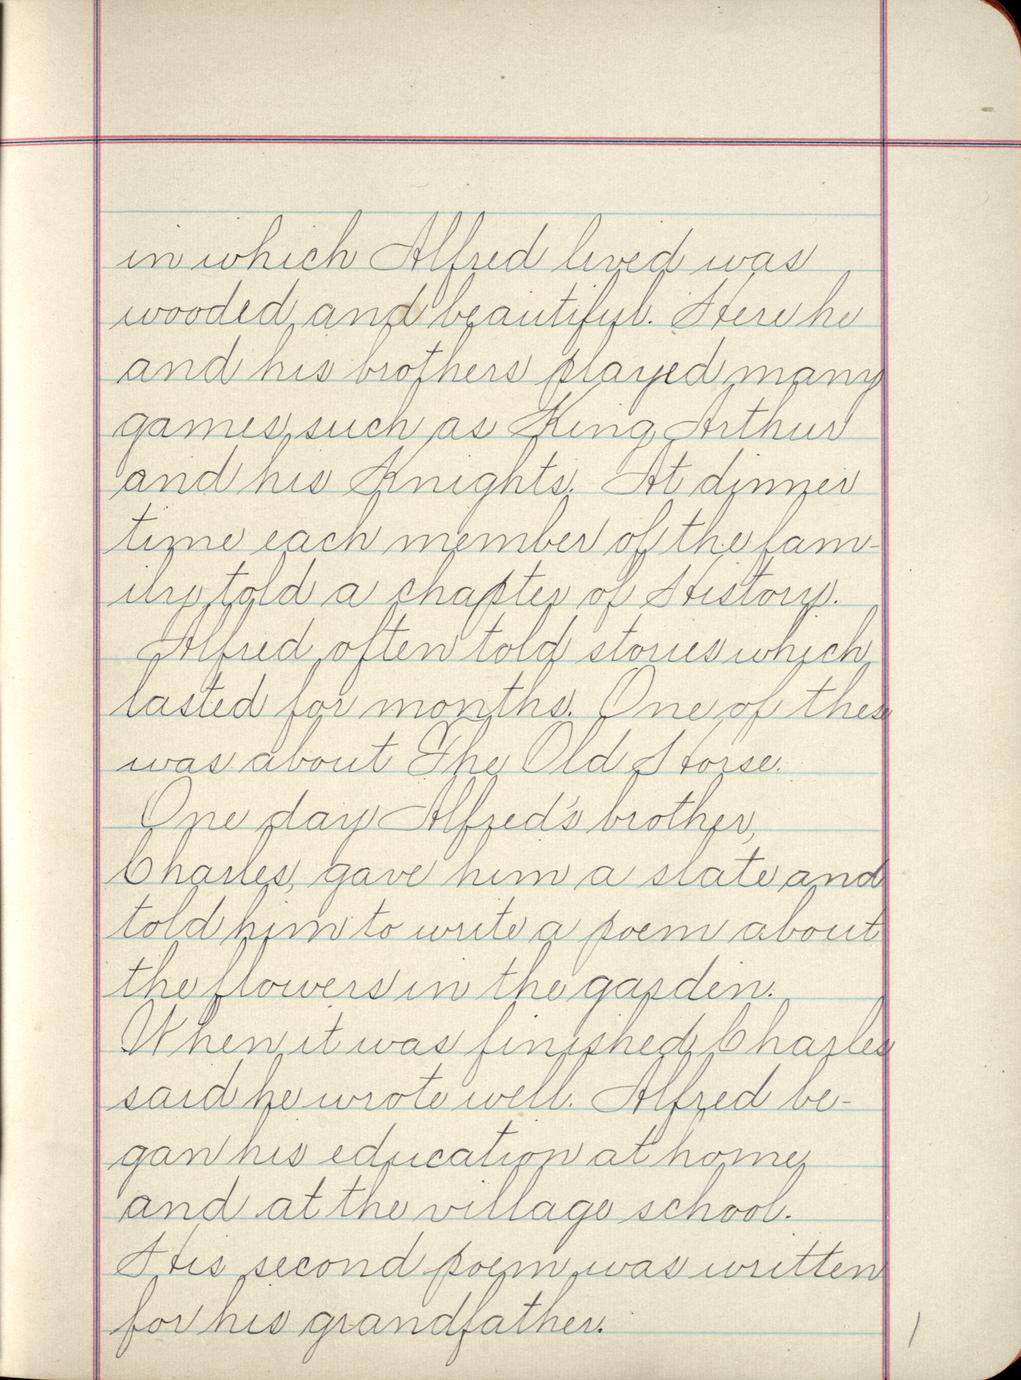 in which Alfred lived was
wooded and beautiful. Here he
and his brothers played many
games, such as King Arthur
and his Knights. At dinner
time each member of the fam-
ily told a chapter of History.
Alfred often told stories which
lasted for months. One of these
was about The Old Horse.
One day Alfred's brother,
Charles, gave him a slate and
told him to write a poem about
the flowers in the garden.
When it was finished Charles
said he wrote well. Alfred be-
gan his education at home
and at the village school.
His second poem was written
for his grandfather.